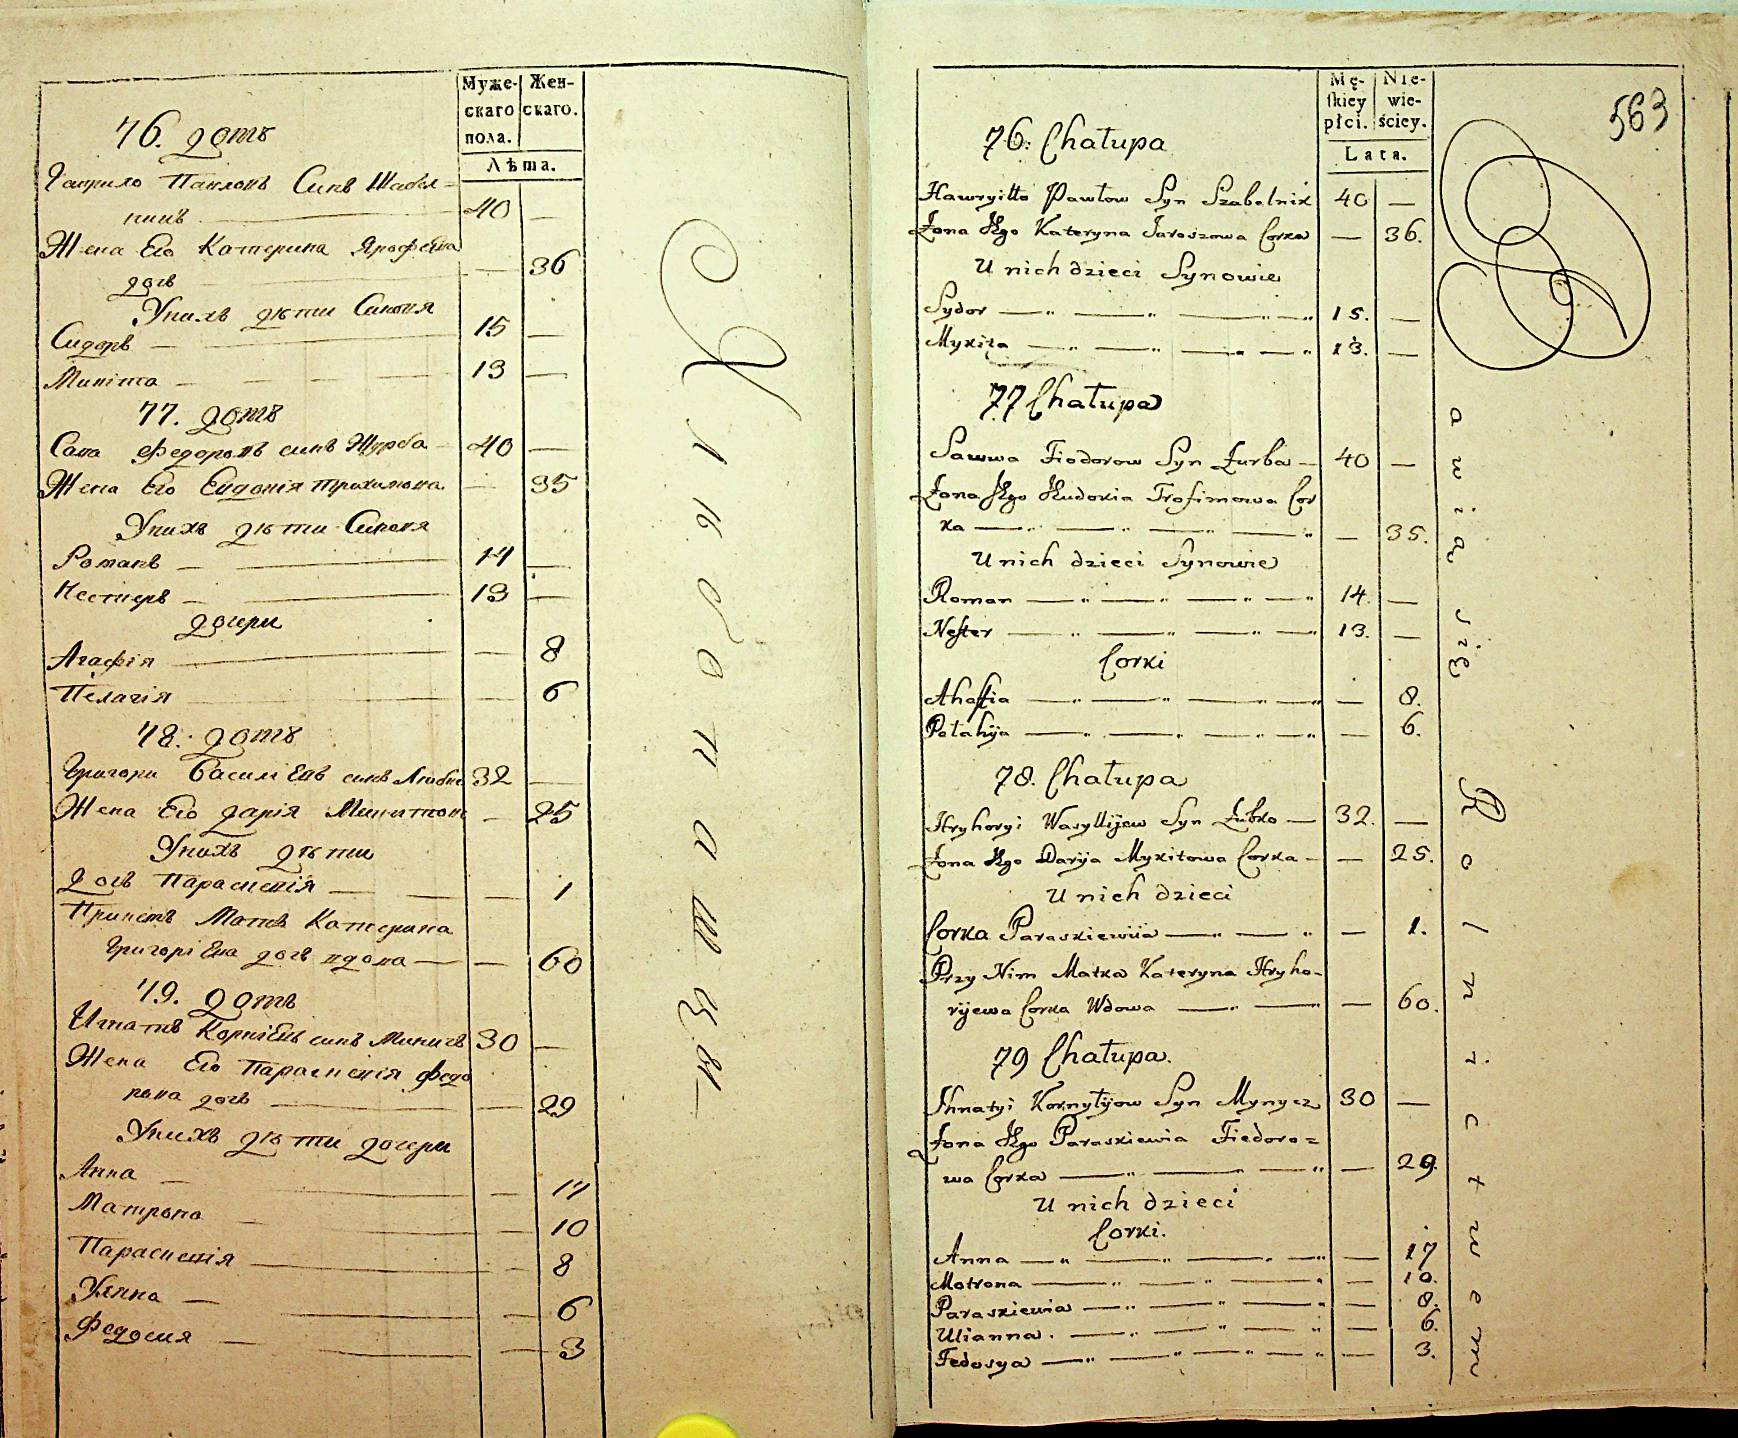 Муже-
скаго
пола.
Жен-
скаго.
Лѣта.
76. домъ
Гаврило Павловъ Синъ Шабел=
никъ 40 —
Жена Его Катерина Ярофеева
дочъ — 36
Унихъ дѣти Синовя
Сидоръ 15 —
Микита 13 —
77. домъ
Сава Федоровъ синъ Журба 40 —
Жена Его Евдокія Трохимова — 35
Унихъ дѣти Синовя
Романъ 14 —
Нестеръ 13 —
дочери
Агафія — 8
Пелагія — 6
78. домъ
Григори Василіевъ синъ Любко 32 —
Жена Его Дарія Микитова — 25
Унихъ дѣти
дочъ Параскевія — 1
Принемъ Матъ Катерина
Григоріева дочъ вдова — 60
79. домъ
Игнатъ Корніевъ синъ Миничъ 30 —
Жена Его Параскевія Федо
рова дочъ — 29
Унихъ дѣти дочери
Анна — 17
Матрона — 10
Параскевія — 8
Улянна — 6
Федосия — 3
Mę-
skiey
płci.
Nie-
wie-
ściey.
Lata.
563
76. Chałupa
Hawryiłło Pawłow Syn Szabelnik 40 —
Żona Jego Kateryna Jaroszowa Corka — 36.
U nich dzieci Synowie
Sydor 15. —
Mykita 13. —
77 Chałupa
Sawwa Fiodorow Syn Żurba 40 —
Żona Jego Eudokia Trofimowa Cor
ka — 35.
U nich dzieci Synowie
Roman 14. —
Nester 13. —
Corki
Ahafia — 8.
Pelahija — 6.
78. Chałupa
Hryhoryi Wasylijew Syn Lubko 32. —
Żona Jego Darija Mykitowa Corka — 25.
U nich dzieci
Corka Paraskiewiia — 1.
Przy Nim Matka Kateryna Hryho-
rijewa Corka Wdowa — 60.
79 Chałupa.
Ihnatyi Kornyłijow Syn Mynycz 30 —
Żona Jego Paraskiewia Fiedoro=
wa Corka — 29.
U nich dzieci
Corki.
Anna — 17
Motrona — 10.
Paraskiewia — 8.
Ulianna. — 6.
Fedosya — 3.
awią się Rolnictwem